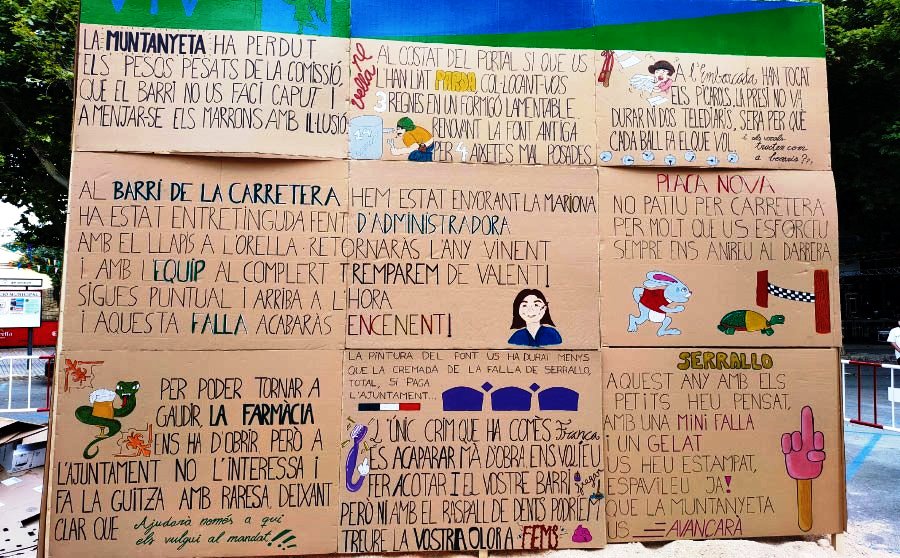 LA MUNTANYETA HA PERDUT
ELS PESOS PESATS DE LA COMISSIÓ,
QUE EL BARRI NO US FACI CAPUT I
A MENJAR-SE ELS MARRONS AMB IL·LUSIÓ
vella
AL COSTAT DEL PORTAL SI QUE US
L'HAN LIAT PARDA COL·LOCANT-VOS
3 REGNES EN UN FORMIGÓ LAMENTABLE
RENOVANT LA FONT ANTIGA
PER 4 AIXETES MAL POSADES
A l'Emborcada HAN TOCAT
ELS PICAROLS, LA PRESI NO VA
DURAR NI DOS TELEDIARIS, SERÀ PER QUÈ
CADA BALL FA EL QUE VOL. i els vocals
tracten com
a bonsis?!,
AL BARRI DE LA CARRETERA
HA ESTAT ENTRETINGUDA FENT D'ADMINISTRADORA
AMB EL LLAPIS A L'ORELLA. RETORNARÀS L'ANY VINENT
I AMB L'EQUIP AL COMPLERT TREMPAREM DE VALENT!
SIGUES PUNTUAL I ARRIBA A L'HORA
I AQUESTA FALLA ACABARÀS ENCENENT!
HEM ESTAT ENYORANT LA MARIONA
PLAÇA NOVA
NO PATIU PER CARRETERA
PER MOLT QUE US ESFORCEU
SEMPRE ENS ANIREU AL DARRERA
PER PODER TORNAR A
GAUDIR, LA FARMÀCIA
ENS HA D'OBRIR PERÒ A
L'AJUNTAMENT NO L'INTERESSA I
FA LA GUITZA AMB RARESA DEIXANT
CLAR QUE Ajudarà només a qui
els vulgui al mandat!!!
LA PINTURA DEL PONT US HA DURAT MENYS
QUE LA CREMADA DE LA FALLA DE SERRALLO,
TOTAL, SI PAGA
L'AJUNTAMENT...
L'ÚNIC CRIM QUE HA COMÈS França
ÉS ACAPARAR MÀ D'OBRA. ENS VOLIEU
FER ACOTAR I EL VOSTRE BARRI
PERÒ NI AMB EL RASPALL DE DENTS PODRIEM
TREURE LA VOSTRA OLOR A FEMS
SERRALLO
AQUEST ANY AMB ELS
PETITS HEU PENSAT,
AMB UNA MINI FALLA
I UN GELAT
US HEU ESTAMPAT,
ESPAVILEU JA!
QUE LA MUNTANYETA
US AVANÇARÀ